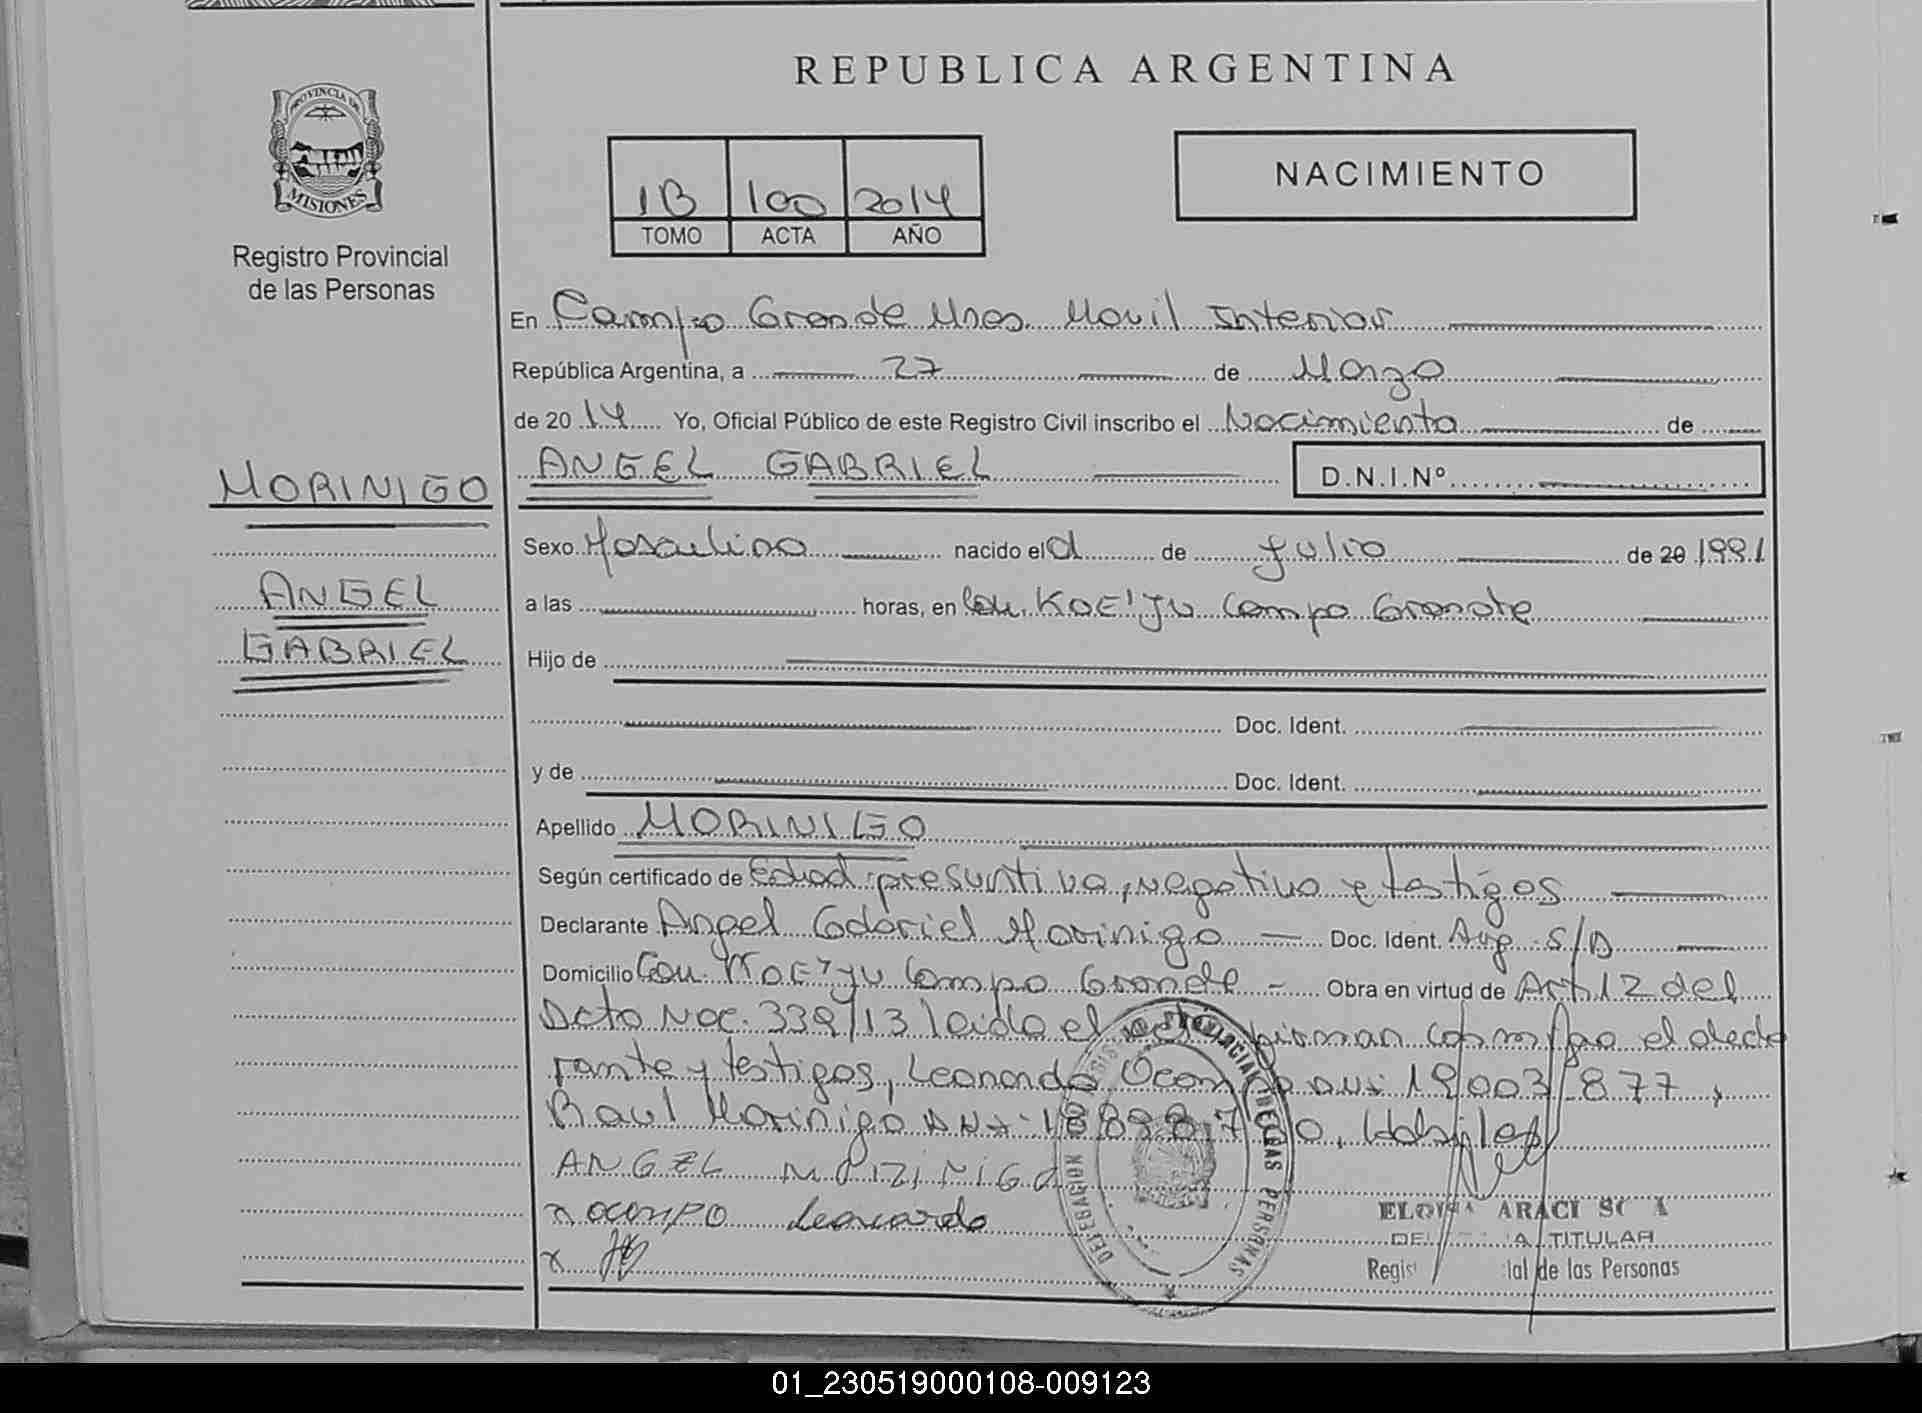 REPUBLICA ARGENTINA
PROVINCIA DE
MISIONES
Registro Provincial
de las Personas
1B 100 2014
TOMO ACTA AÑO
NACIMIENTO
En Campo Grande Mnes. Movil Interior
República Argentina, a 27 de Marzo
de 2014 Yo, Oficial Público de este Registro Civil inscribo el Nacimiento de
MORINIGO
ANGEL GABRIEL D.N.I.Nº
Sexo Masculino nacido el de Julio de 20 1991
ANGEL
GABRIEL
a las horas, en Com. KAE'JU Campo Grande
Hijo de
Doc. Ident.
y de Doc. Ident.
Apellido MORINIGO
Según certificado de Edad presuntiva, negativo e testigos
Declarante Angel Gabriel Morinigo Doc. Ident. Arg. S/D
Domicilio Com. Campo Grande Obra en virtud de Art 12 del
Dcto Nac. 339/13 leido el firman el decla
rante y testigos, Leonardo Ocampo DNI 19003877,
Raul Morinigo DNI
ANGEL
x ocampo Leonardo
x
DELEGACION REGISTRO PROVINCIAL DE LAS PERSONAS
ARACI
TITULAR
de las Personas
01_230519000108-009123